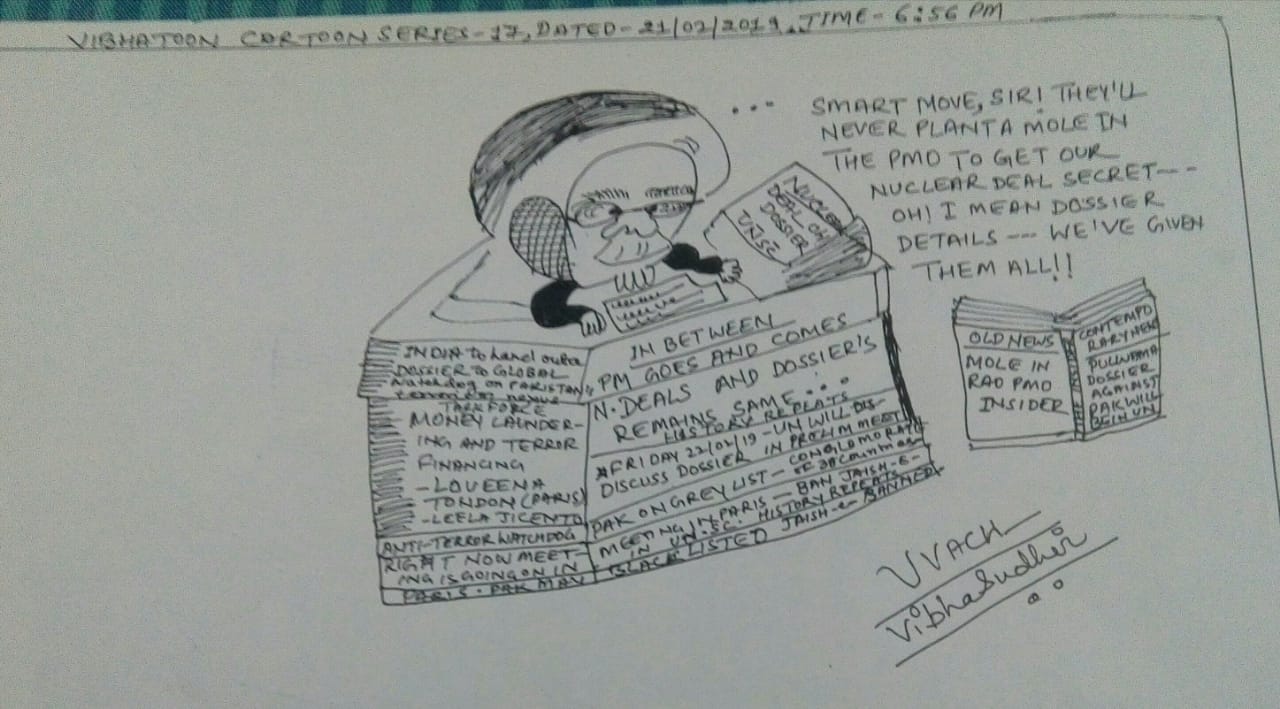 VIBHATOON CORTOON SERIES-17, DATED-21/02/2019, TIME-6:56 PM
... SMART MOVE, SIR! THEY'LL
NEVER PLANT A MOLE IN
THE PMO TO GET OUR
NUCLEAR DEAL SECRET---
OH! I MEAN DOSSIER
DETAILS --- WE'VE GIVEN
THEM ALL!!
NUCLEAR
DEAL OH
DOSSIER
UNSC
INDIA to hand out a
DOSSIER TO GLOBAL
watchdog on PAKISTAN'S
terrorism nexus
TASK FORCE
MONEY LAUNDER-
ING AND TERROR
FINANCING
-LOVEENA
TONDON (PARIS)
-LEELA JICENTO
ANTI-TERROR WATCHDOG
RIGHT NOW MEET-
ING IS GOING ON IN
PARIS. PAK MAY
IN BETWEEN
PM GOES AND COMES
N. DEALS AND DOSSIER'S
REMAINS SAME...
HISTORY REPEATS
*FRIDAY 22/02/19-UN WILL DIS-
DISCUSS DOSSIER IN PRELIM MEET
PAK ON GREY LIST- CONGLOMORATE
OF 38 countries
MEETING IN PARIS - BAN JAISH-E-
IN UN.SC. HISTORY REPEATS
BLACKLISTED JAISH-e- BANNED
OLD NEWS
MOLE IN
RAO PMO
INSIDER
CONTEMPO
RARY NEWS
PULLWAMA
DOSSIER
AGAINST
PAK WILL
BE IN UN
UVACH
VibhaSudhir